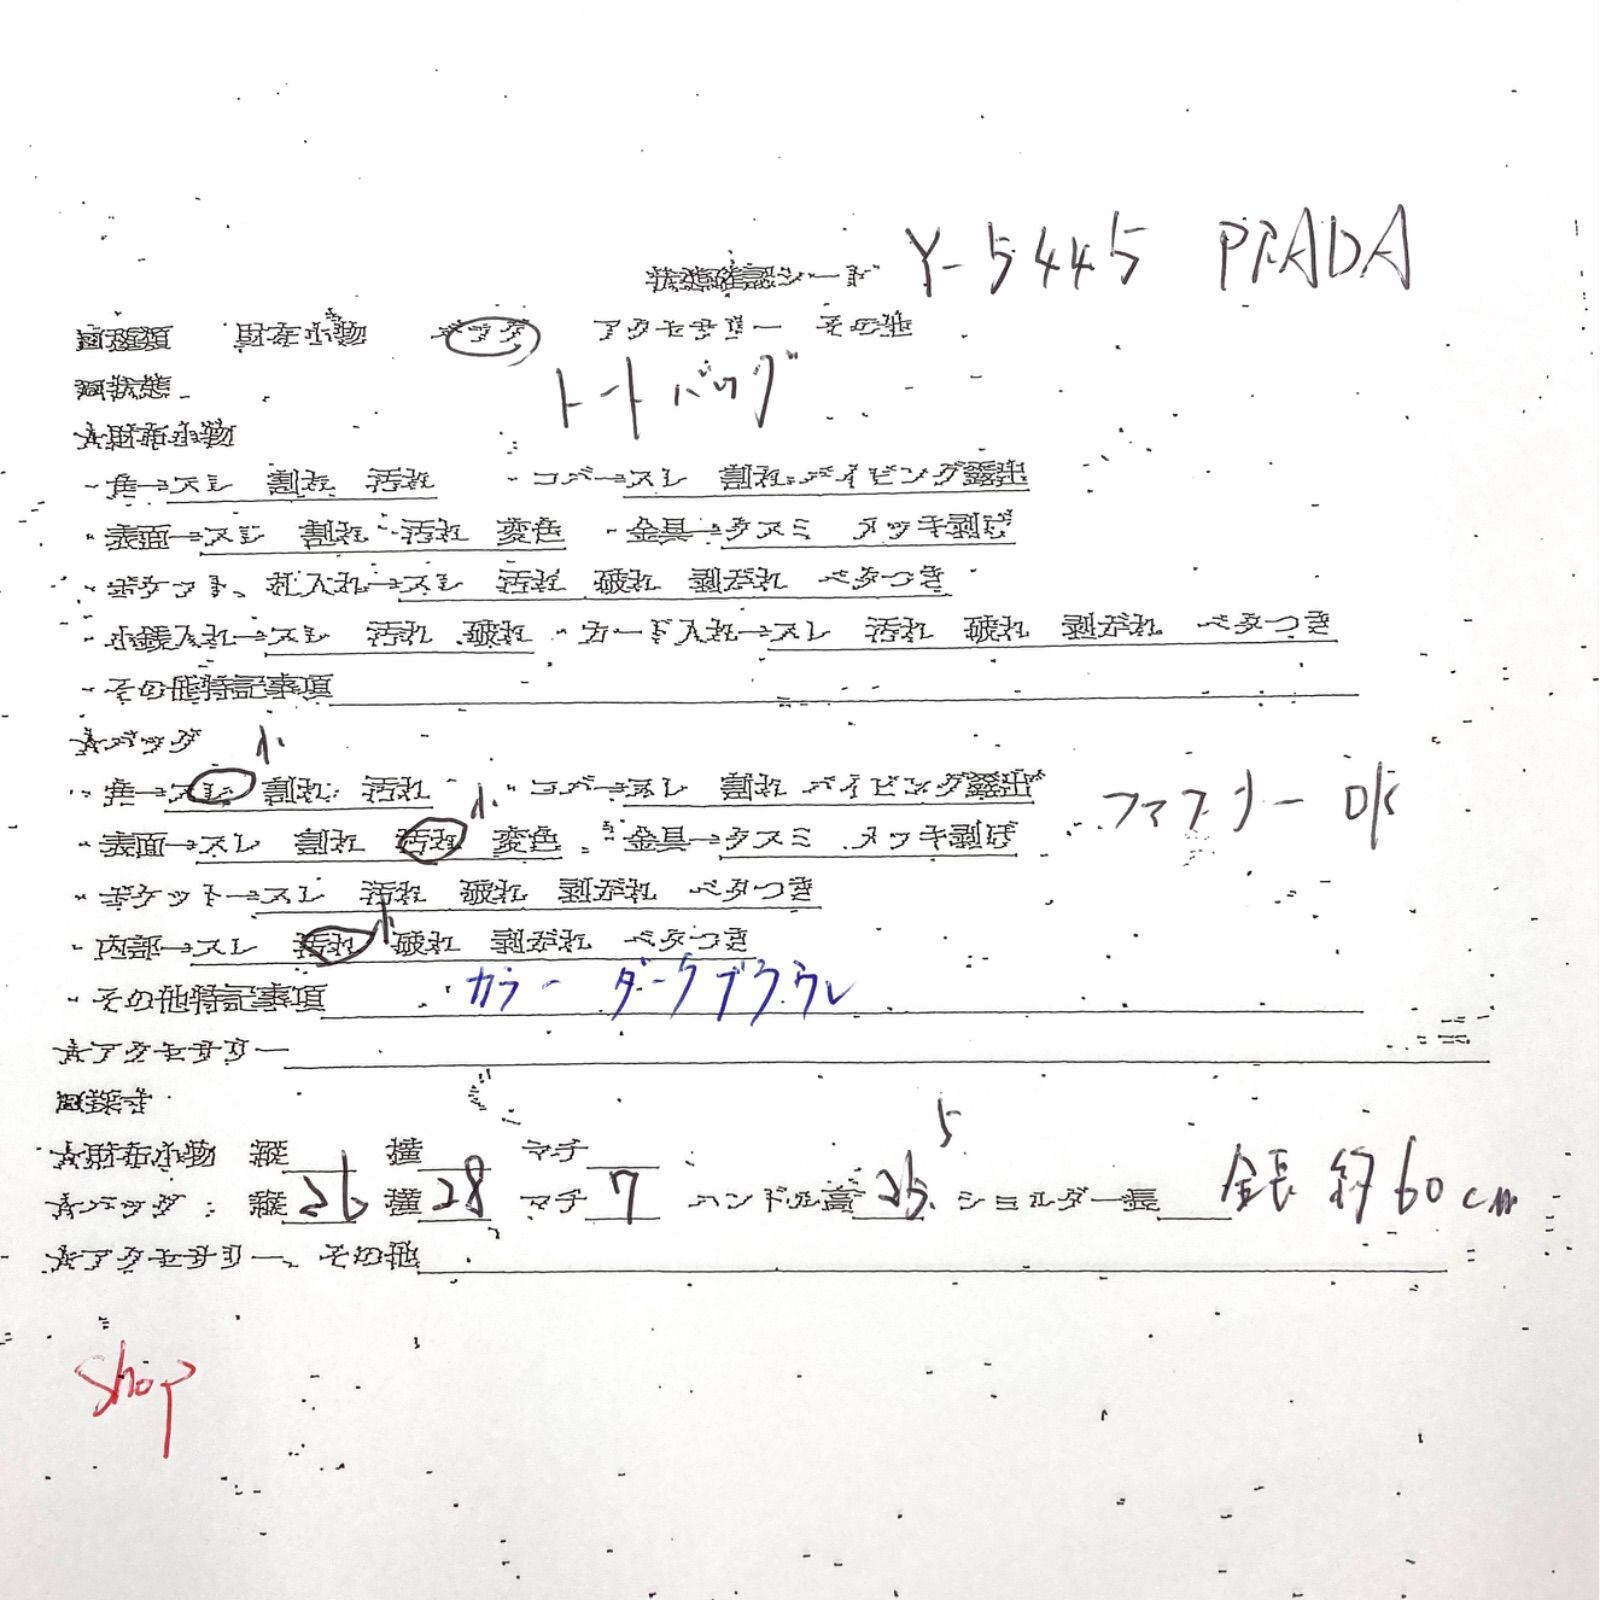 状態確認シート Y-5445 PRADA
■種類 財布小物 バッグ アクセサリー その他
■状態 トートバッグ
★財布小物
・角→スレ 割れ 汚れ ・コバ→スレ 割れ パイピング露出
・表面→スレ 割れ 汚れ 変色 ・金具→クスミ メッキ剥げ
・ポケット、札入れ→スレ 汚れ 破れ 剥がれ ベタつき
・小銭入れ→スレ 汚れ 破れ ・カード入れ→スレ 汚れ 破れ 剥がれ ベタつき
・その他特記事項
★バッグ
小
・角→スレ 割れ 汚れ ・コバ→スレ 割れ パイピング露出
小 ファスナー OK
・表面→スレ 割れ 汚れ 変色 ・金具→クスミ メッキ剥げ
・ポケット→スレ 汚れ 破れ 剥がれ ベタつき
・内部→スレ 汚れ 小 破れ 剥がれ ベタつき
・その他特記事項 カラー ダークブラウン
★アクセサリー
■採寸
★財布小物 縦 横 マチ
★バッグ:縦26 横28 マチ7 ハンドル高25.5 ショルダー長 全長 約60cm
★アクセサリー、その他
shop